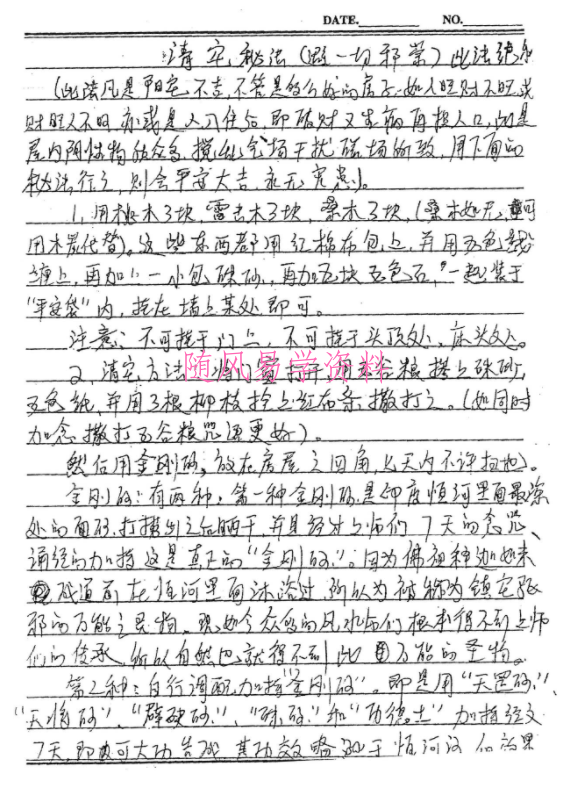 DATE. NO.
清宅秘法（照一切邪祟）此法绝
（此法凡是阳宅不吉，不管是什么的房子，如人旺财不旺或
财旺人不旺，亦或是入住后即破财又生病再损人口，此是
屋内阴性物，搅乱气场干扰磁场所致，用下面的
秘法行之，则会平安大吉，永无灾患）。
1，用桃木3块，雷击木3块，桑木3块，（桑木如无，可
用木炭代替）。这些东西都用红棉布包上，并用五色线
缠上，再加一小包硃砂，再加五块五色石，一起装于
“平安袋”内，挂在墙上某处即可。
注意：不可挂于门上，不可挂于头顶处，床头处。
2，清宅方法：将门窗打开，用五谷粮拌上硃砂，
随风易学资料
五色纸，并用3根柳枝拴上红布条撒打之。（如同时
加念撒打五谷粮咒还更好）。
然后用金刚砂，放在房屋之四角，七天内不许扫地）。
金刚砂：有两种，第一种金刚砂是印度恒河里面最深
处的面砂，打捞出之后晒干，并且经过上师们7天的念咒、
诵经的加持，这是真正的“金刚砂”。因为佛祖释迦如来
成道前在恒河里面沐浴过，所以为被称为镇宅驱
邪的万能之灵物。现如今众多的风水师们根本得不到上师
们的传承，所以自然也就得不到此万能的圣物。
第2种：自行调配加持“金刚砂”。即是用“天罡砂”、
“天将砂”、“辟破砂”、“硃砂”和“功德土”加持经文
7天，即可大功告成，其功效略逊于恒河沙的效果